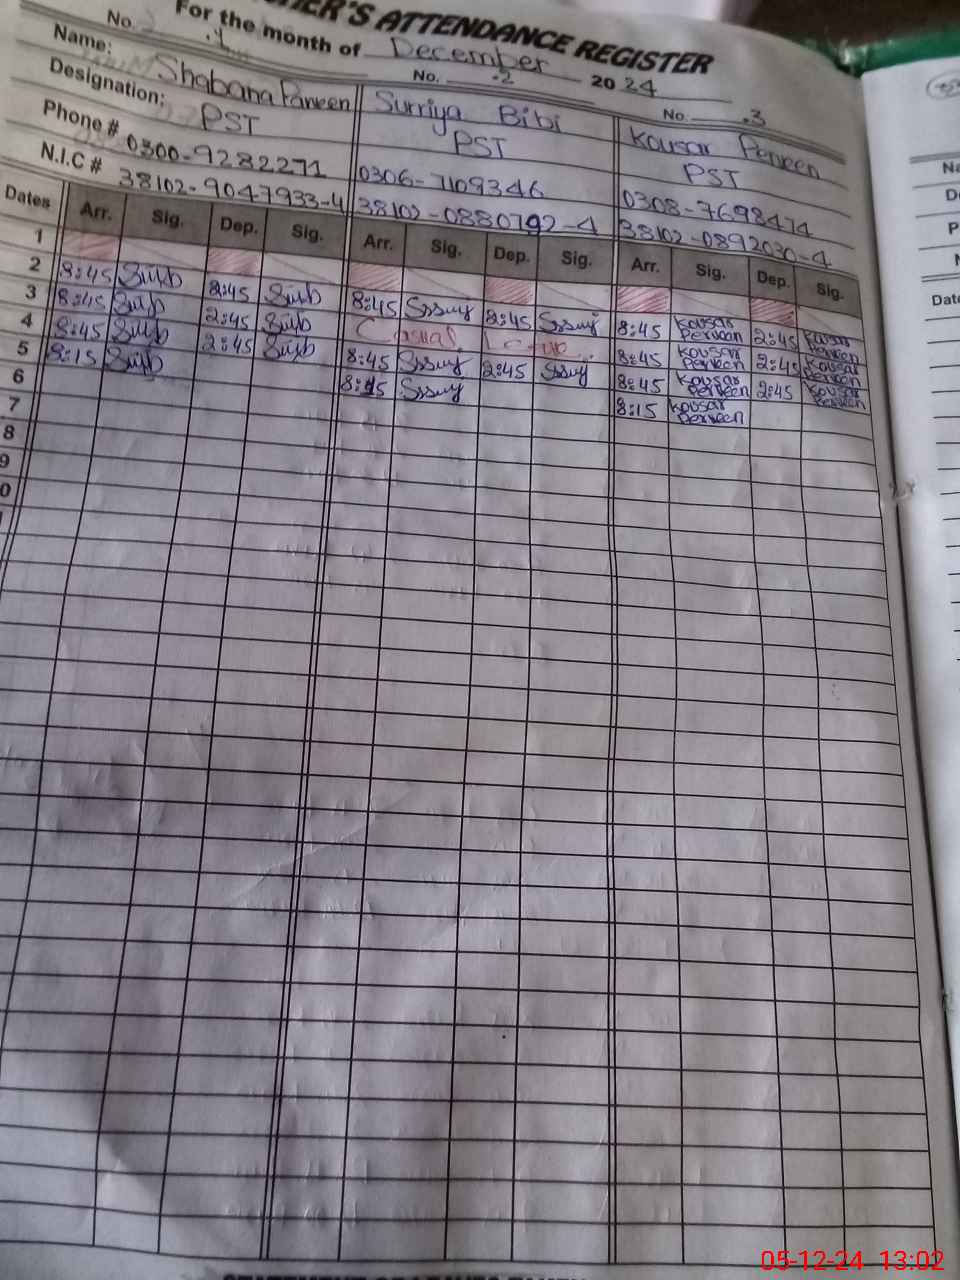 TEACHER'S ATTENDANCE REGISTER
For the month of December 2024
No. .1 No. .2 No. .3
Name: Shabana Parveen Surriya Bibi Kousar Perveen
Designation: PST PST PST
Phone # 0300-9282271 0306-7109346 0308-7698474
N.I.C # 38102-9047933-4 38102-0880792-4 38102-0892030-4
Dates Arr. Sig. Dep. Sig. Arr. Sig. Dep. Sig. Arr. Sig. Dep. Sig.
1
2 8:45 2:45 8:45 2:45 8:45 Kousar Perveen 2:45 Kousar Perveen
3 8:45 2:45 Casual Leave 8:45 Kousar Perveen 2:45 Kousar Perveen
4 8:45 2:45 8:45 2:45 8:45 Kousar Perveen 2:45 Kousar Perveen
5 8:15 8:15 8:15 Kousar Perveen
6
7
8
9
0
05-12-24 13:02